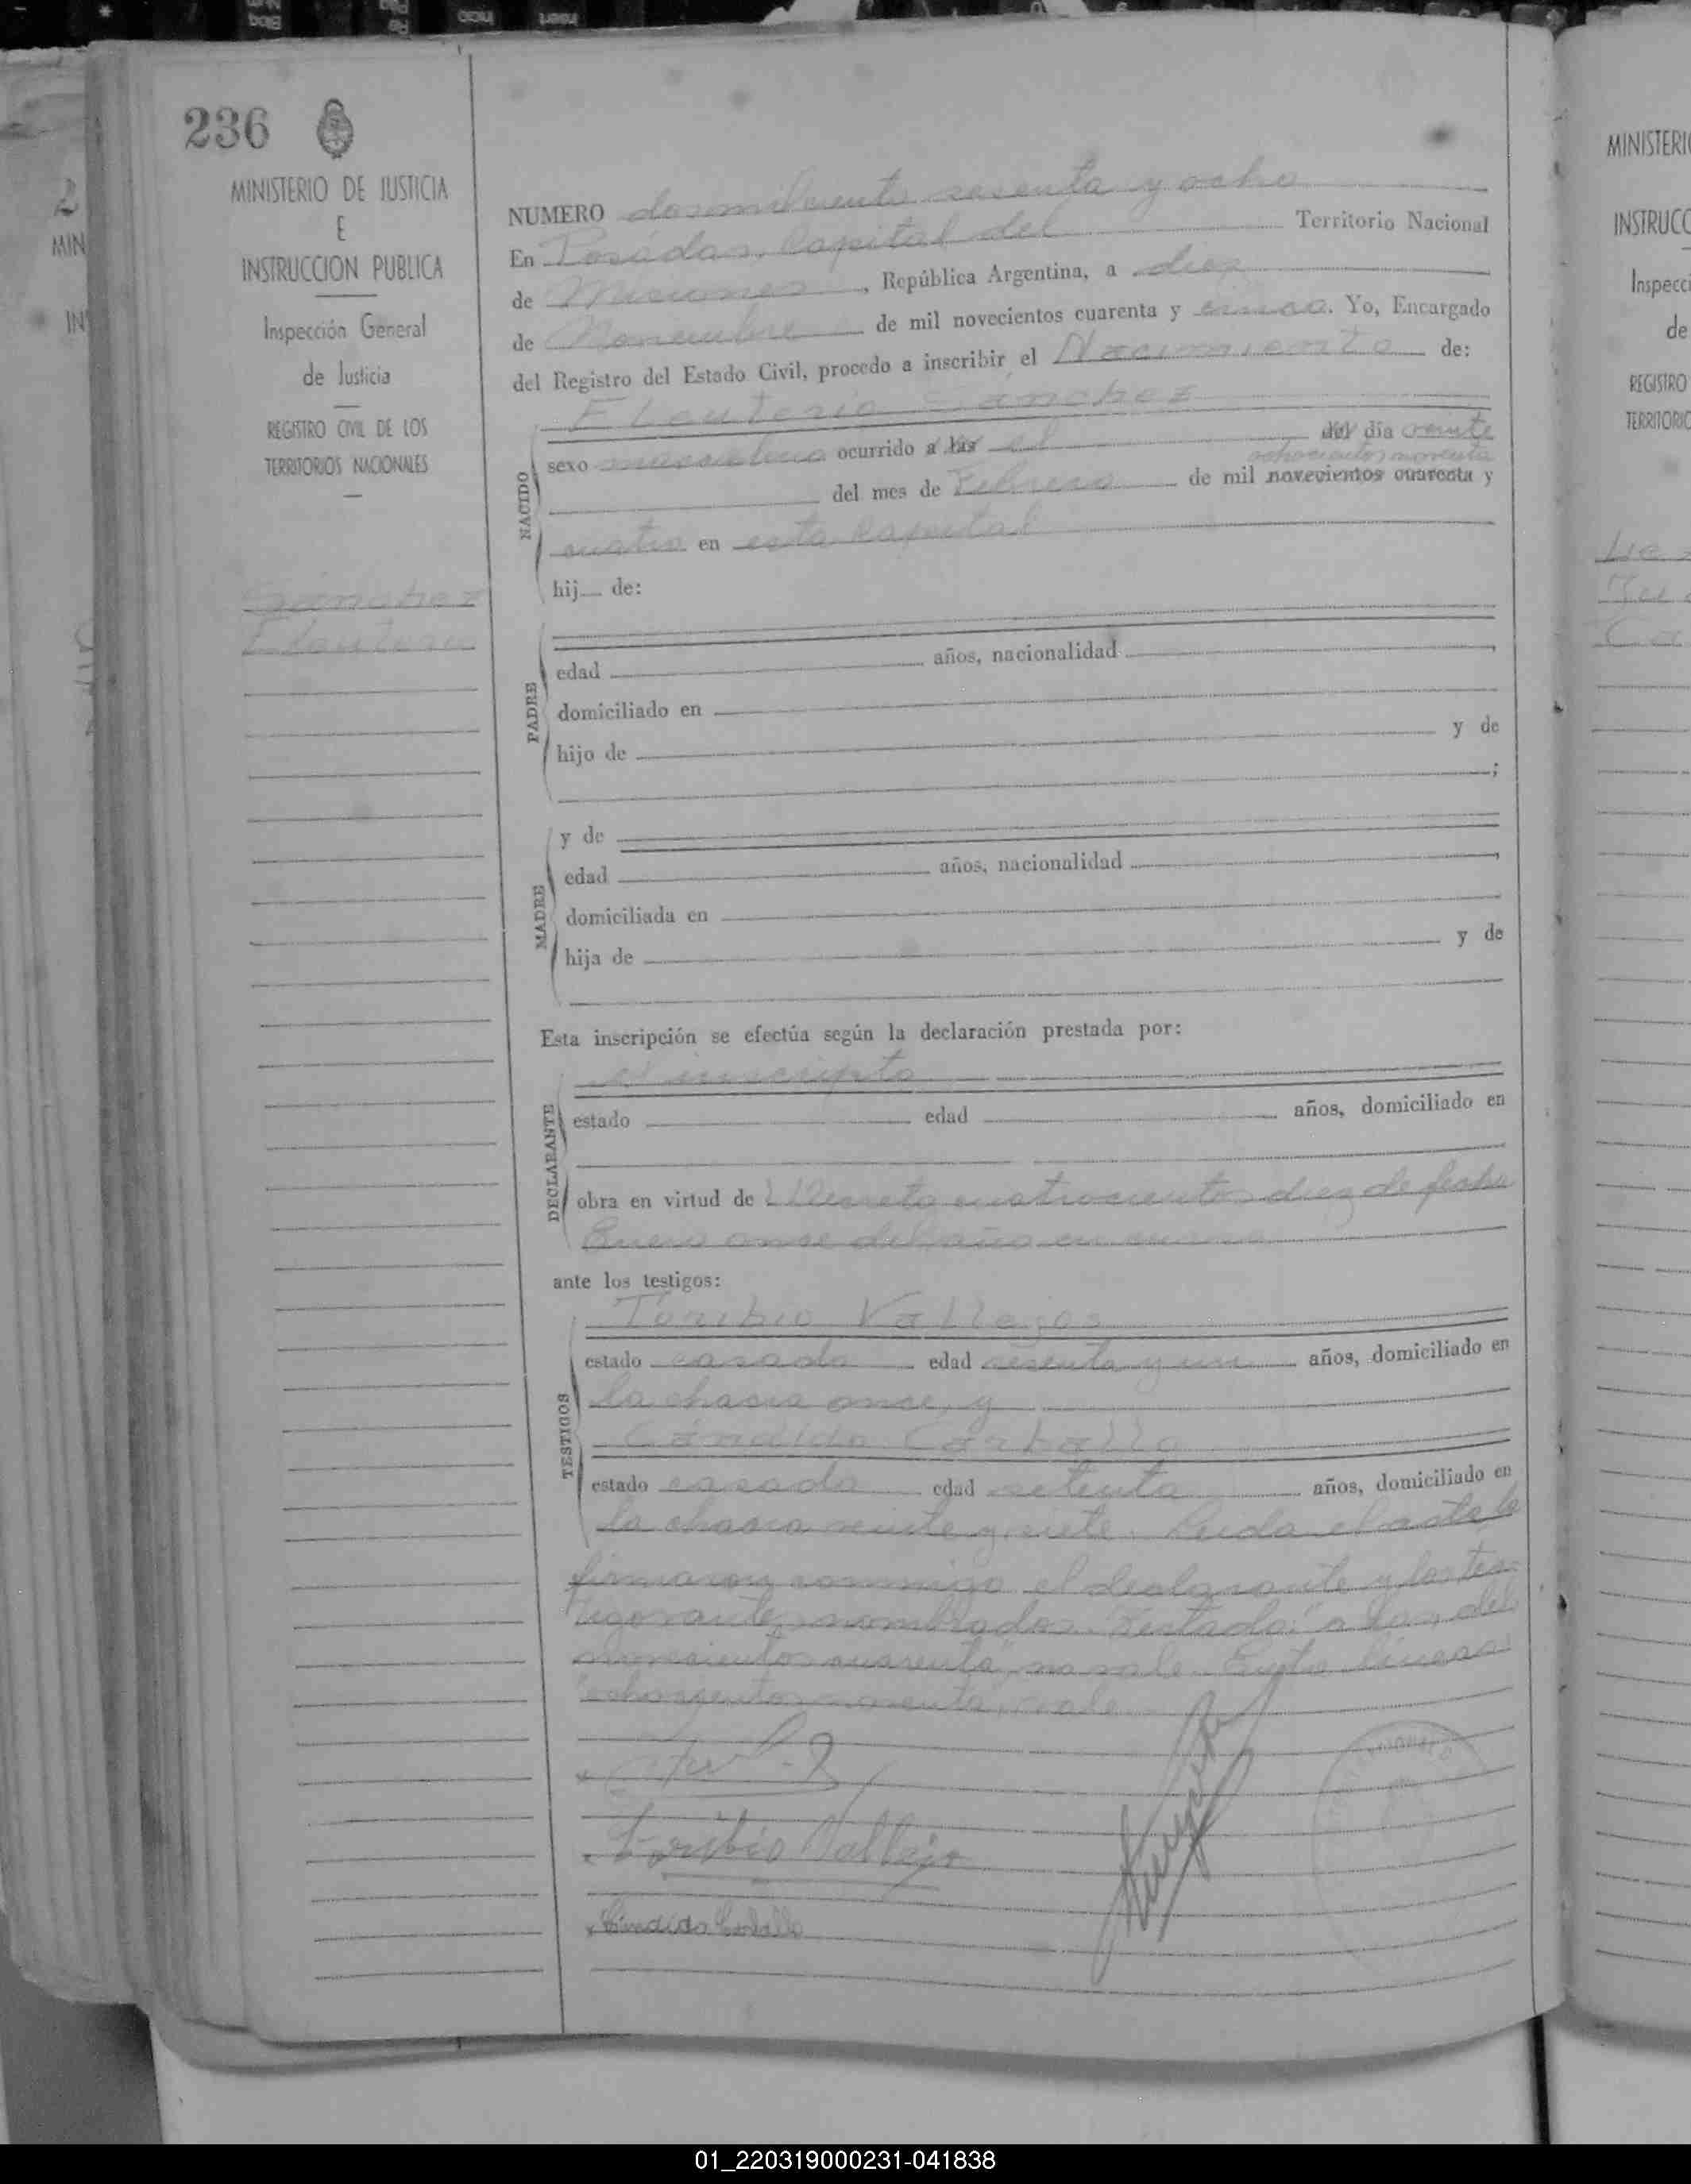 236
MINISTERIO DE JUSTICIA
E
INSTRUCCION PUBLICA
Inspección General
de Justicia
REGISTRO CIVIL DE LOS
TERRITORIOS NACIONALES
Sánchez
Eleuterio
NUMERO dosmilciento sesenta y ocho
En Posadas, Capital del Territorio Nacional
de Misiones, República Argentina, a diez
de Noviembre de mil novecientos cuarenta y cinco. Yo, Encargado
del Registro del Estado Civil, procedo a inscribir el Nacimiento de:
Eleuterio Sánchez
NACIDO
sexo masculino ocurrido a las el del día veinte
ochocientos noventa
del mes de Febrero de mil novecientos cuarenta y
cuatro en esta Capital
hij de:
PADRE
edad años, nacionalidad
domiciliado en
hijo de y de
;
MADRE
y de
edad años, nacionalidad
domiciliada en
hija de y de
Esta inscripción se efectúa según la declaración prestada por:
el inscripto
DECLARANTE
estado edad años, domiciliado en
obra en virtud de Decreto cuatrocientos diez de fecha
Enero once del año en curso
ante los testigos:
TESTIGOS
Toribio Vallejos
estado casado edad sesenta y un años, domiciliado en
la chacra once, y
Cándido Carballo
estado casado edad setenta años, domiciliado en
la chacra veinte y siete. Leida el acta la
firmaron conmigo el declarante y los tes-
tigos antes nombrados. Testado: "a las, del
novecientos cuarenta", no vale. Entre lineas:
"ochocientos noventa", vale.
Toribio Vallejo
Cándido Carballo
MINISTERI
INSTRUCC
Inspecci
de
REGISTRO
TERRITORIO
01_220319000231-041838